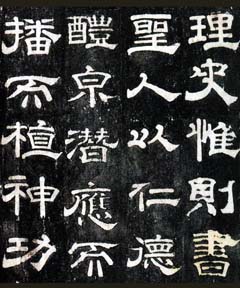 理史惟則書
聖人以仁德
醴泉潛應不
播不植神功